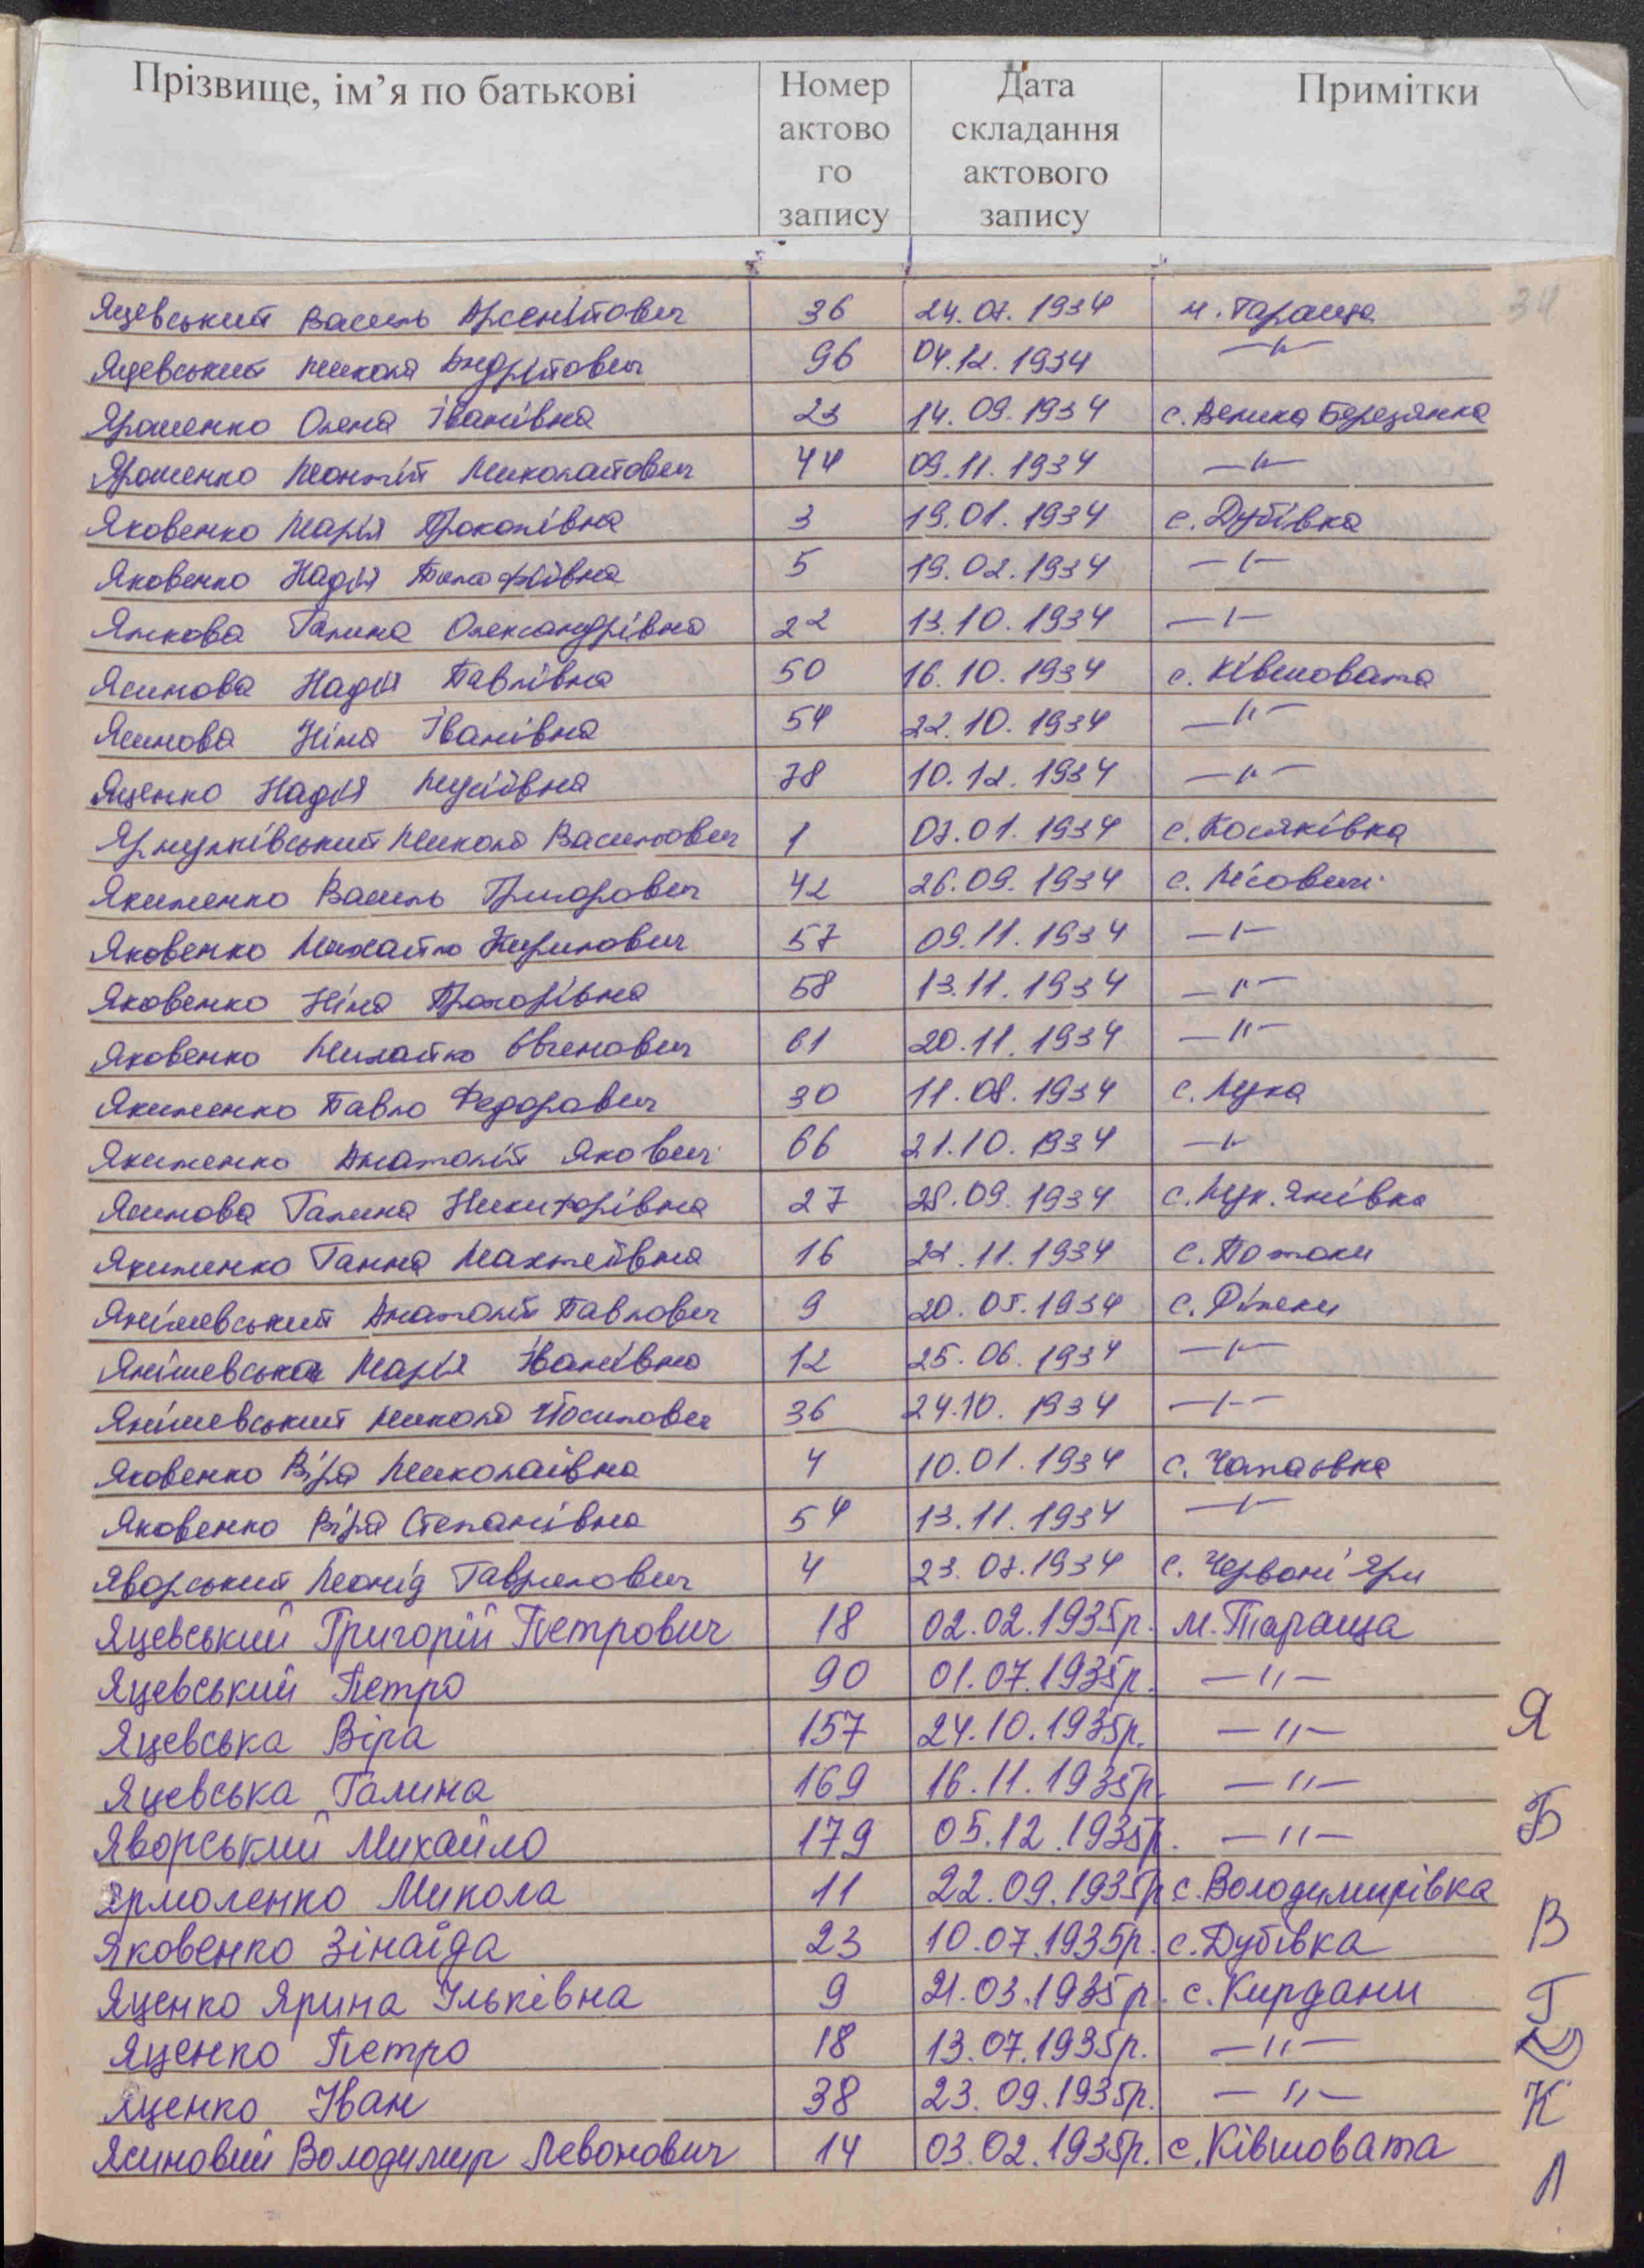 Прізвище, ім’я по батькові Номер актово го запису Дата складання актового запису Примітки
34
Яцевський Василь Арсенійович 36 24.07.1934 м. Тараща
Яцевський Микола Андрійович 96 04.12.1934 —"—
Ярошенко Олена Іванівна 23 14.09.1934 с. Велика Березянка
Ярошенко Леонтій Миколайович 44 09.11.1934 —"—
Яковенко Марія Прокопівна 3 19.01.1934 с. Дубівка
Яковенко Надія 5 19.02.1934 —"—
Галина Олександрівна 22 13.10.1934 —"—
Ясинова Надія Павлівна 50 16.10.1934 с. Ківшовата
Ясинова Ніна Іванівна 54 22.10.1934 —"—
Яценко Надія Мусіївна 78 10.12.1934 —"—
Микола Васильович 1 07.01.1934 с. Косяківка
Якименко Василь Григорович 42 26.09.1934 с. Лісовичі
Яковенко Михайло Кирилович 57 09.11.1934 —"—
Яковенко Ніна Прохорівна 58 13.11.1934 —"—
Яковенко Михайло Євгенович 61 20.11.1934 —"—
Якименко Павло Федорович 30 11.08.1934 с. Лука
Якименко Анатолій Якович 66 21.10.1934 —"—
Ясинова Галина Никифорівна 27 28.09.1934 с. Лук'янівка
Якименко Ганна Махтеївна 16 22.11.1934 с. Потоки
Янішевський Анатолій Павлович 9 20.05.1934 с. Ріжки
Янішевська Марія Іванівна 12 25.06.1934 —"—
Янішевський Микола Йосипович 36 24.10.1934 —"—
Яковенко Віра Миколаївна 4 10.01.1934 с. Чапаєвка
Яковенко Віра Степанівна 54 13.11.1934 —"—
Яворський Леонід Гаврилович 4 23.07.1934 с. Червоні Яри
Яцевський Григорій Петрович 18 02.02.1935р. м. Тараща
Яцевський Петро 90 01.07.1935р. —"—
Яцевська Віра 157 24.10.1935р. —"—
Яцевська Галина 169 16.11.1935р. —"—
Яворський Михайло 179 05.12.1935р. —"—
Ярмоленко Микола 11 22.09.1935р с. Володимирівка
Яковенко Зінаїда 23 10.07.1935р. с. Дубівка
Яценко Ярина Ільківна 9 21.03.1935р. с. Кирдани
Яценко Петро 18 13.07.1935р. —"—
Яценко Іван 38 23.09.1935р. —"—
Ясиновий Володимир Левонович 14 03.02.1935р. с. Ківшовата
Я
Б
В
Г
Д
К
Л